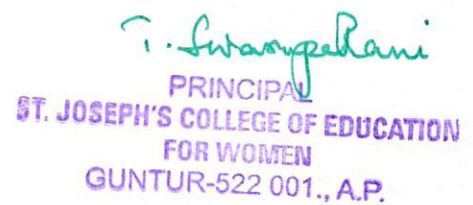 T. Swarupa Rani
PRINCIPAL
ST. JOSEPH'S COLLEGE OF EDUCATION
FOR WOMEN
GUNTUR-522 001., A.P.